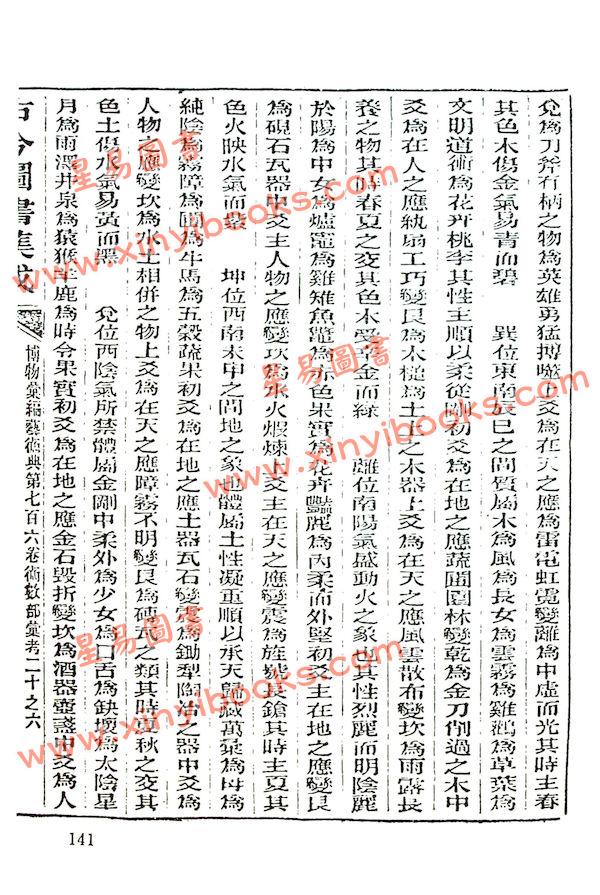 兌為刀斧有柄之物為英雄勇猛搏噬上爻為在天之應為雷電虹霓變離為中虛而光其時主春
其色木傷金氣易青而碧　巽位東南辰巳之間質屬木為風為長女為雲霧為雞鵝為草葉為
文明道術為花卉桃李其性主順以柔從剛初爻為在地之應蔬圃園林變乾為金刀削過之木中
爻為在人之應紈扇工巧變艮為木槌為土上之木器上爻為在天之應風雲散布變坎為雨露長
養之物其時春夏之交其色木受金而綠　離位南陽氣盛動火之象也其性烈麗而明陰麗
於陽為中女為爐竈為雞雉魚鱉為赤色果實為花卉豔麗為內柔而外堅初爻主在地之應變艮
為硯石瓦器中爻主人物之應變坎為水火煆煉上爻主在天之應變震為旌號長鎗其時主夏其
色火映水氣而紫　坤位西南未申之間地之象也體屬土性凝重順以承天歸藏萬葉為母為
純陰為霧障為圃為牛馬為五穀蔬果初爻為在地之應土器瓦石變震為鋤犁陶冶之器中爻為
人物之應變坎為水土相併之物上爻為在天之應障霧不明變艮為磚瓦之類其時夏秋之交其
色土傷水氣易黃而墨　兌位西陰氣所禁體屬金剛中柔外為少女為口舌為缺壞為太陰星
月為雨澤井泉為猿猴羊鹿為時令果實初爻為在地之應金石毀折變坎為酒器壺盞中爻為人
古今圖書集成
博物彙編藝術典第七百六卷術數部彙考二十之六
星易圖書
www.xinyibooks.com
星易圖書
www.xinyibooks.com
星易圖書
www.xinyibooks.com
141